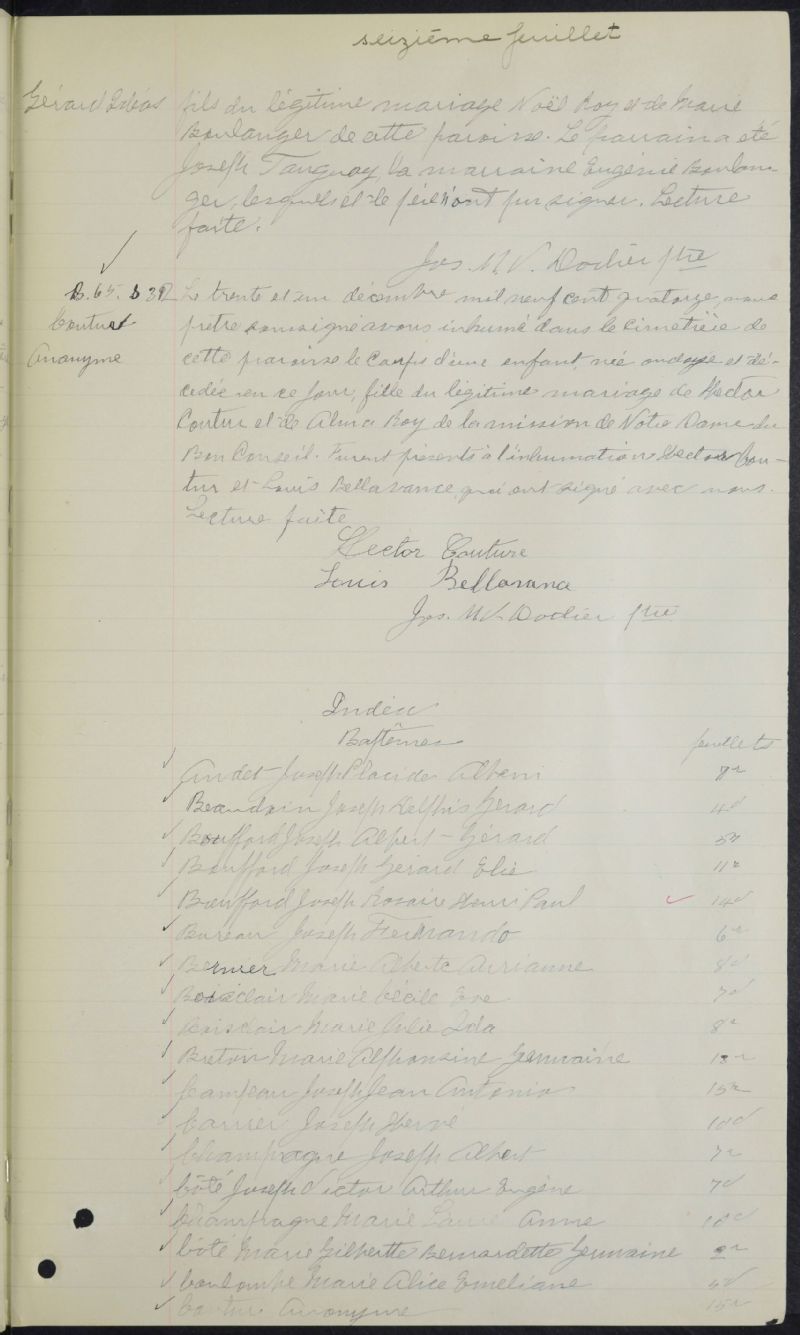 seizième feuillet
Gérard
fils du légitime mariage Noël Roy et de Marie
Boulanger de cette paroisse. Le parrain a été
Joseph Tanguay, la marraine Eugénie Boulan-
ger, lesquels et le père n'ont pu signer. Lecture
faite.
Jos. M.V. Dodier ptre
B. 65. S 32
Couture
Anonyme
Le trente et un décembre mil neuf cent quatorze, nous
prêtre soussigné avons inhumé dans le cimetière de
cette paroisse le corps d'une enfant, née ondoyée et dé-
cédée en ce jour, fille du légitime mariage de Hector
Coutur et de Alma Roy de la mission de Notre Dame du
Bon Conseil. Furent présents à l'inhumation Hector Cou-
tur et Louis Bellavance qui ont signé avec nous.
Lecture faite
Hector Couture
Louis Bellavance
Jos. M.V. Dodier ptre
Index
Baptêmes feuillets
Audet Joseph Placide Albani 8r
Beaudoin Joseph Delphis Gérard 4d
Boufford Joseph Albert-Gérard 5r
Boufford Joseph Gérard Elie 11r
Boufford Joseph Rosaire Henri Paul 14d
Bureau Joseph Fernando 6r
Bernier Marie Alberte Arianne 8d
Boisclair Marie Cécile Eve 7d
Boisclair Marie Ida 8r
Breton Marie Alphonsine Germaine
Campeau Joseph Jean Antonio 15r
Carrier Joseph Hervé 10d
Champagne Joseph Albert 7r
Côté Joseph Victor Arthur Eugène 7d
Champagne Marie Anne 10d
Côté Marie Gilberte Bernardette Germaine
Coulombe Marie Alice Emeliane 5d
Couture Anonyme 15r